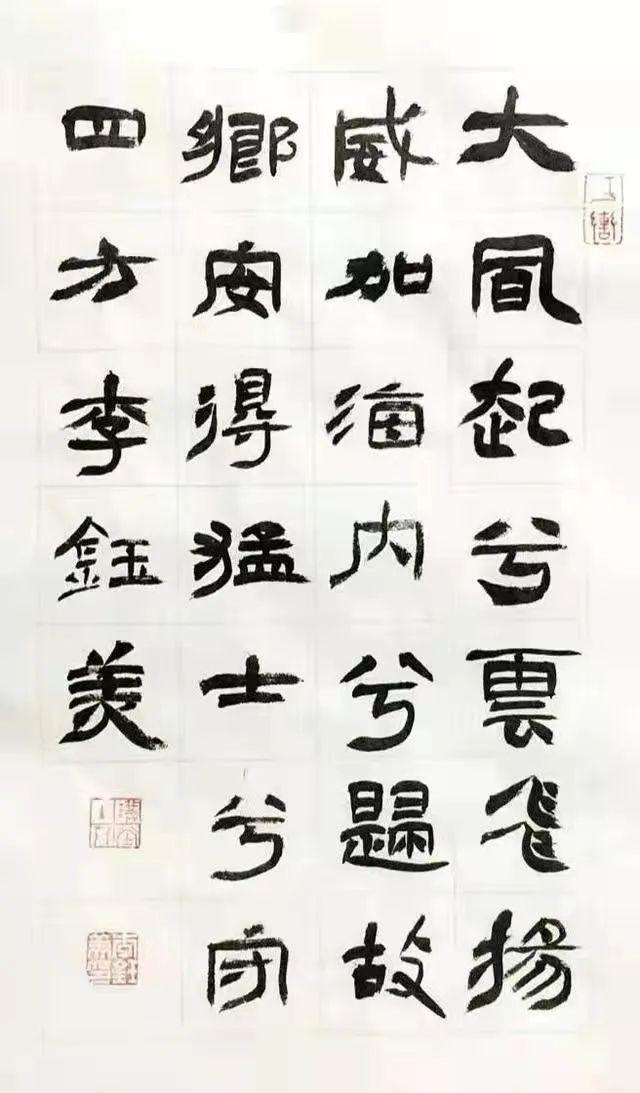 大風起兮雲飛揚
威加海内兮歸故
鄉安得猛士兮守
四方李鈺美